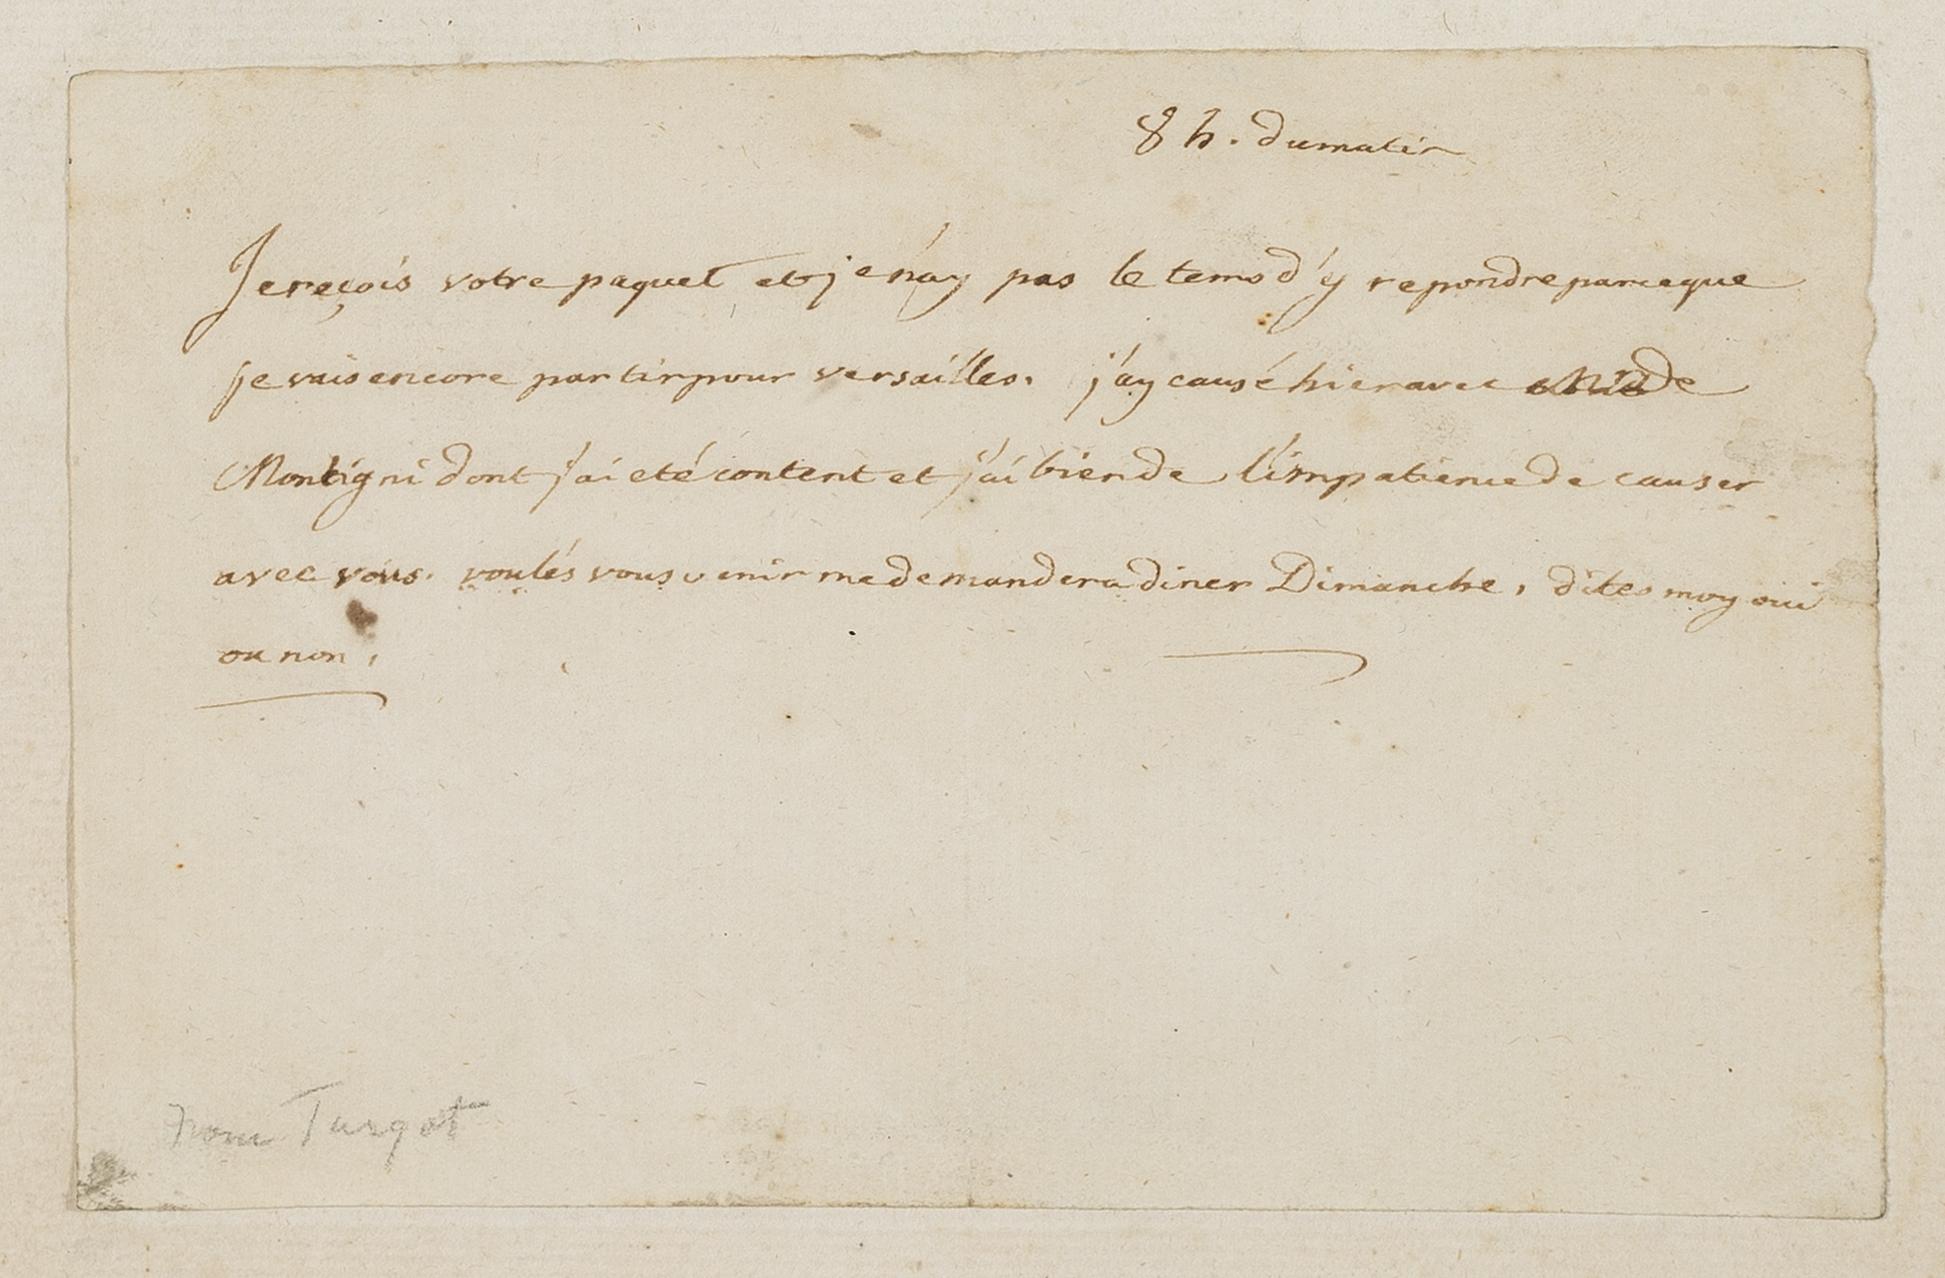 8 h. du matin
Je reçois votre paquet et je n'ay pas le tems d'y repondre parceque
je vais encore partir pour versailles. j'ay causé hier avec de
Montigni dont j'ai eté content et j'ai bien de l'impatience de causer
avec vous. voulés vous venir me demander a diner Dimanche, dites moy oui
ou non,
From Turgot